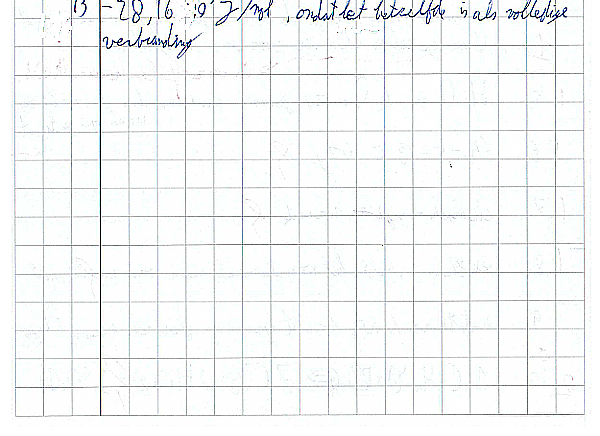 13 -28,16 · 10⁵ J/mol, omdat het hetzelfde is als volledige
verbranding